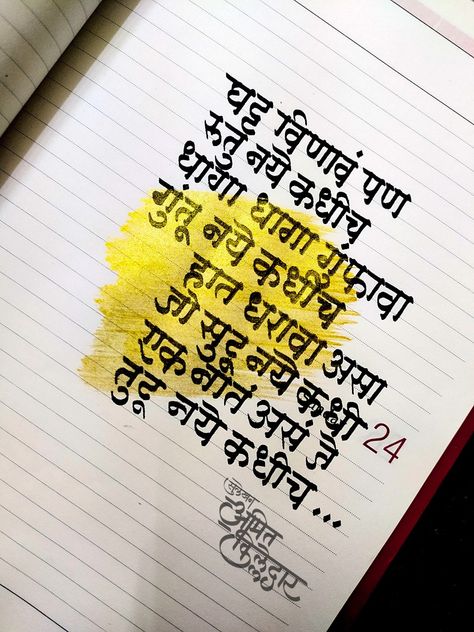 घट्ट विणावं पण
रुतु नये कधीच
धागा धागा गुंफावा
गुंतू नये कधीच
हात धरावा असा
जो सुटू नये कधी
एक नातं असं ते
तुटू नये कधीच...
24
सुलेखन
अमित